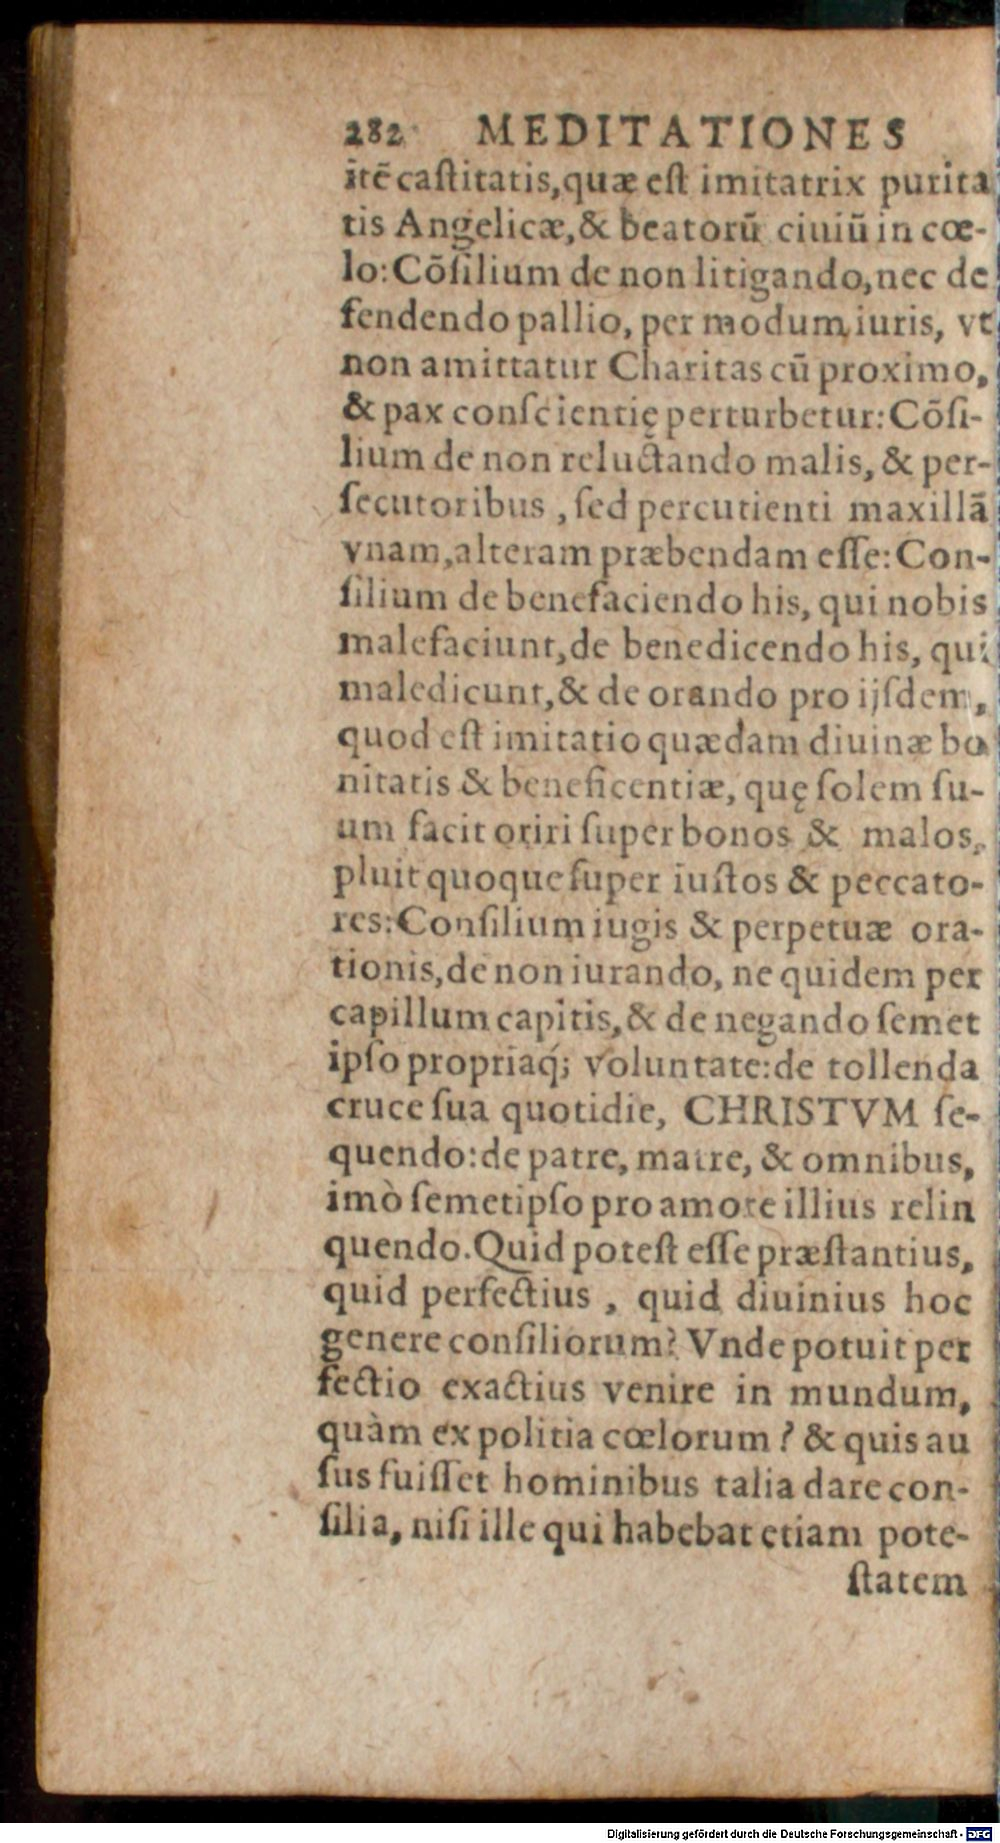 282 MEDITATIONES
itẽ caſtitatis, quæ eſt imitatrix purita
tis Angelicæ, & beatorũ ciuiũ in cœ-
lo: Cõſilium de non litigando, nec de
fendendo pallio, per modum iuris, vt
non amittatur Charitas cũ proximo,
& pax conſcientię perturbetur: Cõſi-
lium de non reluctando malis, & per-
ſecutoribus, ſed percutienti maxillã
vnam, alteram præbendam eſſe: Con-
ſilium de benefaciendo his, qui nobis
malefaciunt, de benedicendo his, qui
maledicunt, & de orando pro ijſdem,
quod eſt imitatio quædam diuinæ bo
nitatis & beneficentiæ, quę ſolem ſu-
um facit oriri ſuper bonos & malos,
pluit quoque ſuper iuſtos & peccato-
res: Conſilium iugis & perpetuæ ora-
tionis, de non iurando, ne quidem per
capillum capitis, & de negando ſemet
ipſo propriaq́; voluntate: de tollenda
cruce ſua quotidie, CHRISTVM ſe-
quendo: de patre, matre, & omnibus,
imò ſemetipſo pro amore illius relin
quendo. Quid poteſt eſſe præſtantius,
quid perfectius, quid diuinius hoc
genere conſiliorum? Vnde potuit per
fectio exactius venire in mundum,
quàm ex politia cœlorum? & quis au
ſus fuiſſet hominibus talia dare con-
ſilia, niſi ille qui habebat etiam pote-
ſtatem
Digitalisierung gefördert durch die Deutsche Forschungsgemeinschaft - DFG